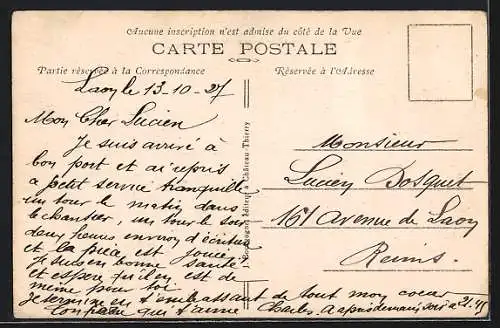 Aucune inscription n'est admise du côté de la Vue
CARTE POSTALE
Partie réservée à la Correspondance
Réservée à l'Adresse
Laon le 13-10-27
Mon Cher Lucien
Je suis arrivé à
bon port et ai repris
a petit service tranquille
un tour le matin dans
le chantier, un tour le soir
deux heures environ d'écriture
et la pièce est jouée.
Je suis en bonne santé
et espère qu'il en est de
même pour toi
Je termine en t'embrassant de tout mon coeur
ton père qui t'aime
Charles. A après demain soir à
Éditeur à Château Thierry
Monsieur
Lucien Bosquet
161 Avenue de Laon
Reims.